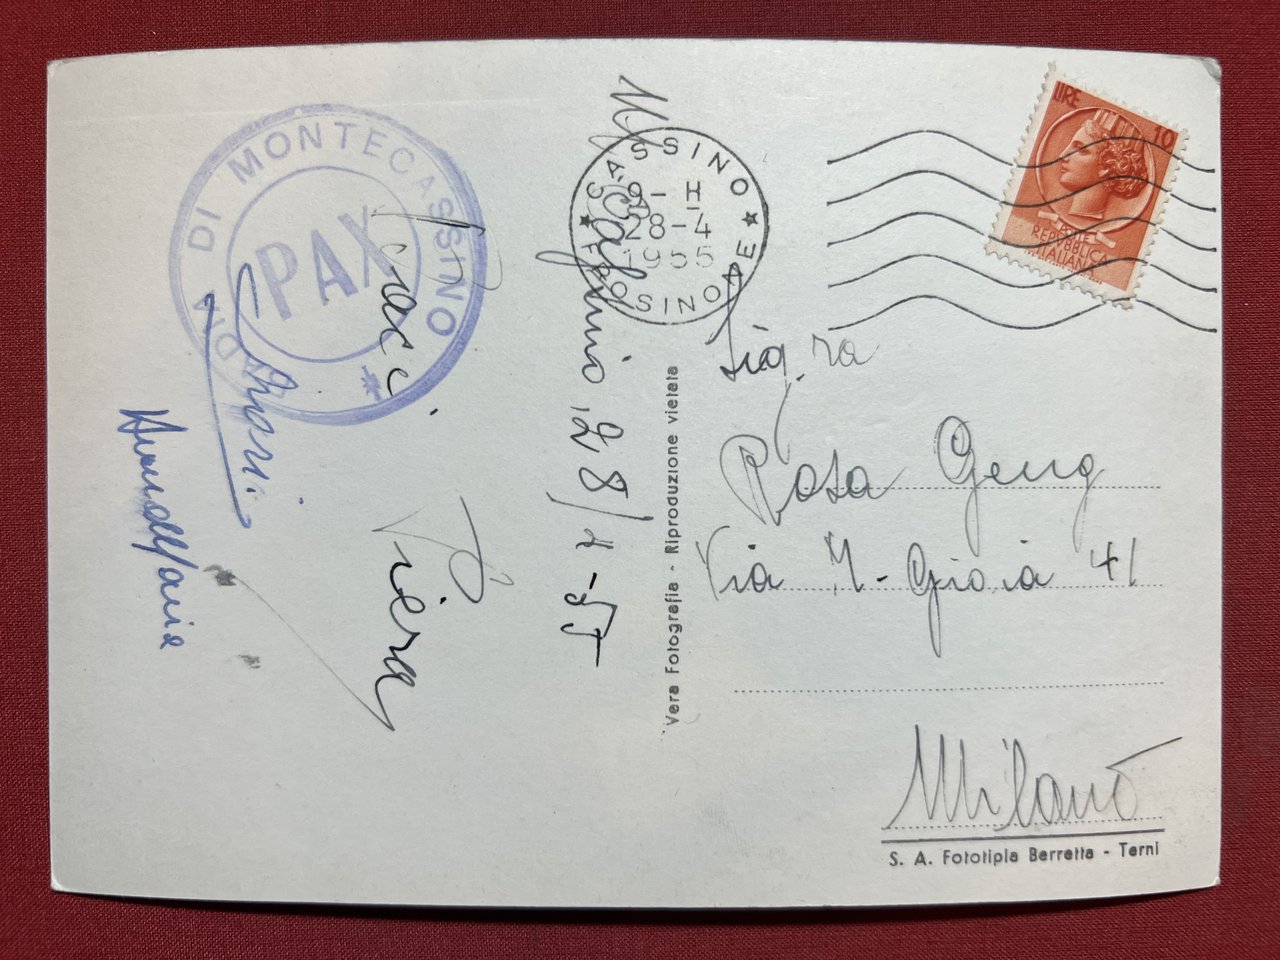 BADIA DI MONTECASSINO
PAX
CASSINO
9-H
28-4
1955
FROSINONE
LIRE 10
REPVBBLICA
ITALIANA
Cassino, 28/4-55
Baci
Piera
Vera Fotografia - Riproduzione vietata
Sig.ra
Rosa Geng
Via M. Gioia 41
Milano
S. A. Fototipia Berretta - Terni